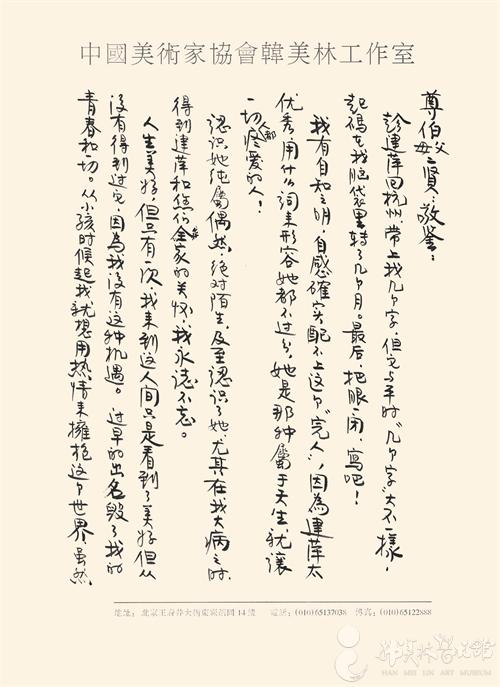 中國美術家協會韓美林工作室
尊伯父母之賢，敬鉴：
彭建萍回杭州，带上我几个字，但它与平时“几个字”大不一樣，
起碼在我脑袋里转了几个月。最后，把眼一闭，寫吧！
我有自知之明，自感確实配不上这个“完人”，因為建萍太
优秀，用什么词来形容她都不过分，她是那种屬于天生，就讓
一切人都疼爱的人！
認识她纯屬偶然，绝对陌生，及至認识了她，尤其在我大病之时，
得到建萍和您们全家的关怀，我永远不忘。
人生美好，但只有一次，我来到这人间只是看到了美好，但从
没有得到过它，因為我没有这种机遇。过早的出名毁了我的
青春和一切。从小孩时候起我就想用热情来擁抱这个世界，虽然，
地址：北京王府井大街東 14號 電話：(010)65137038 傳真：(010)65122888
韩美林艺术馆
HAN MEI LIN ART MUSEUM